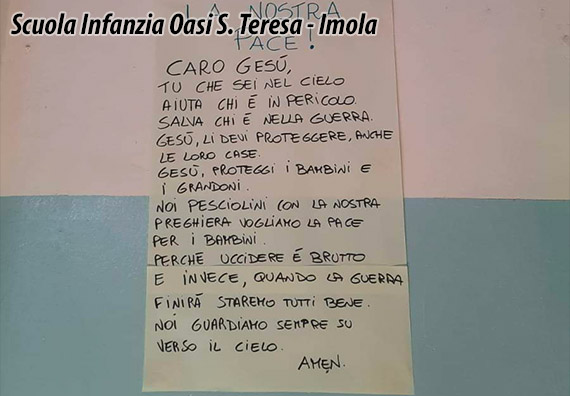 Scuola Infanzia Oasi S. Teresa - Imola
LA NOSTRA
PACE!
CARO GESÙ,
TU CHE SEI NEL CIELO
AIUTA CHI É IN PERICOLO.
SALVA CHI É NELLA GUERRA.
GESÙ, LI DEVI PROTEGGERE, ANCHE
LE LORO CASE.
GESÙ, PROTEGGI I BAMBINI E
I GRANDONI.
NOI PESCIOLINI CON LA NOSTRA
PREGHIERA VOGLIAMO LA PACE
PER I BAMBINI.
PERCHÉ UCCIDERE É BRUTTO
E INVECE, QUANDO LA GUERRA
FINIRÁ STAREMO TUTTI BENE.
NOI GUARDIAMO SEMPRE SU
VERSO IL CIELO.
AMEN.